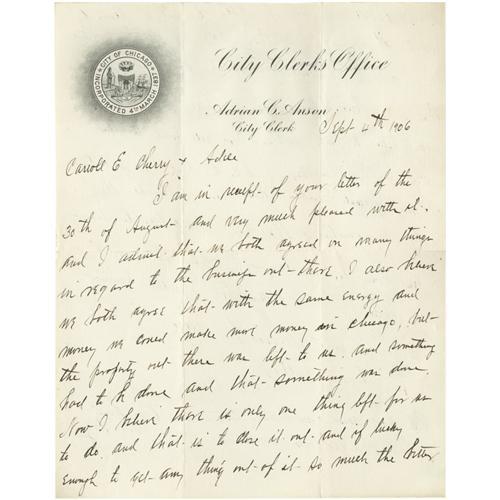 CITY OF CHICAGO
INCORPORATED 4TH MARCH 1837
City Clerk's Office
Adrian C. Anson
City Clerk
Sept 4th 1906
Carroll E Cherry & Adele
I am in receipt of your letter of the
30th of August and very much pleased with it.
and I admit that we both agreed on many things
in regard to the business out there. I also believe
we both agree that with the same energy and
money we could make more money in Chicago, but
the property out there was left to us. and something
had to be done and that something was done.
Now I believe there is only one thing left for us
to do. and that is to close it out and if lucky
enough to get any thing out of it so much the better